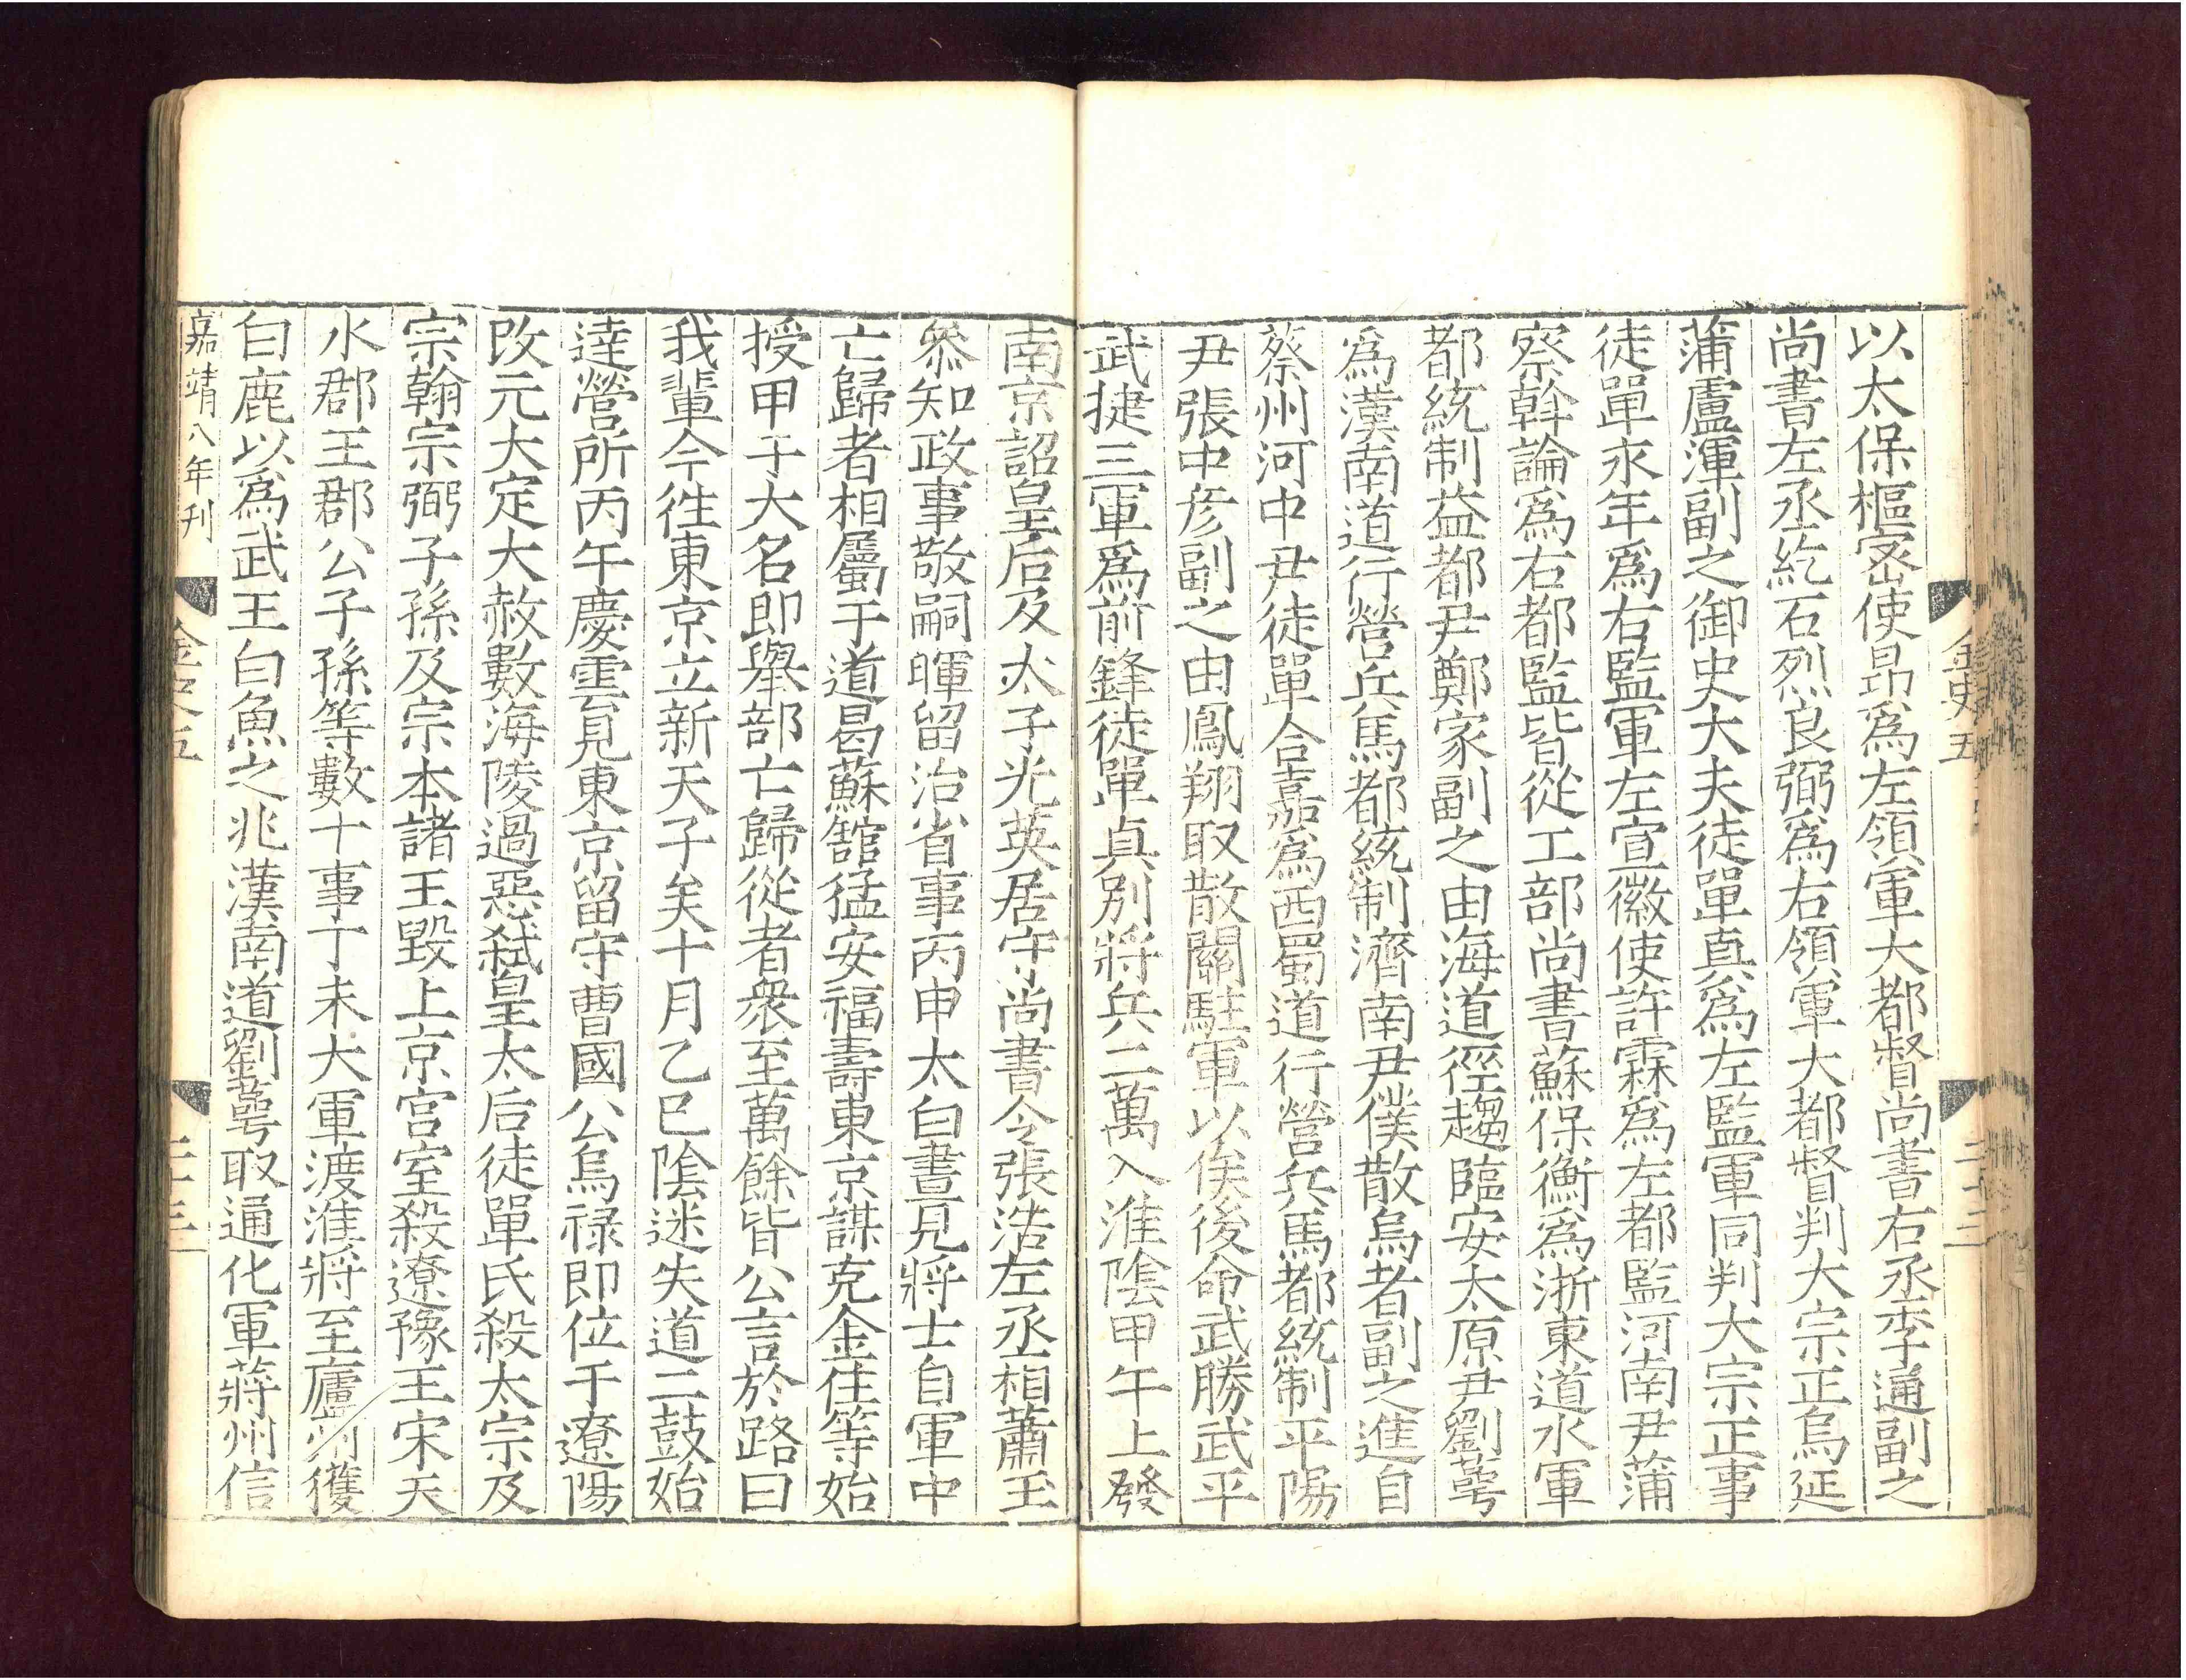 金史五
二十二
以太保樞宻使昂爲左領軍大都督尚書右丞李通副之
尚書左丞紇石烈良弼爲右領軍大都督判大宗正烏延
蒲盧渾副之御史大夫徒單貞爲左監軍同判大宗正事
徒單永年爲右監軍左宣徽使許霖爲左都監河南尹蒲
察斡論爲右都監皆從工部尚書蘇保衡爲浙東道水軍
都統制益都尹鄭家副之由海道徑趨臨安太原尹劉萼
爲漢南道行營兵馬都統制濟南尹僕散烏者副之進自
蔡州河中尹徒單合嘉爲西蜀道行營兵馬都統制平陽
尹張中彥副之由鳳翔取散關駐軍以俟後命武勝武平
武捷三軍爲前鋒徒單貞別將兵二萬入淮陰甲午上發
南京詔皇后及太子光英居守尚書令張浩左丞相蕭玉
叅知政事敬嗣暉留治省事丙申太白晝見將士自軍中
亡歸者相屬于道曷蘇舘猛安福壽東京謀克金住等始
授甲于大名即舉部亡歸從者衆至萬餘皆公言於路曰
我輩今徃東京立新天子矣十月乙巳陰迷失道二鼓始
達營所丙午慶雲見東京留守曹國公烏禄即位于遼陽
改元大定大赦數海陵過惡弑皇太后徒單氏殺太宗及
宗翰宗弼子孫及宗本諸王毀上京宫室殺遼豫王宋天
水郡王郡公子孫等數十事丁未大軍渡淮將至廬州獲
白鹿以爲武王白魚之兆漢南道劉萼取通化軍蔣州信
嘉靖八年刊
金史五